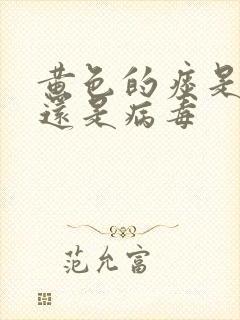 黄色的痰是
还是病毒
范允富